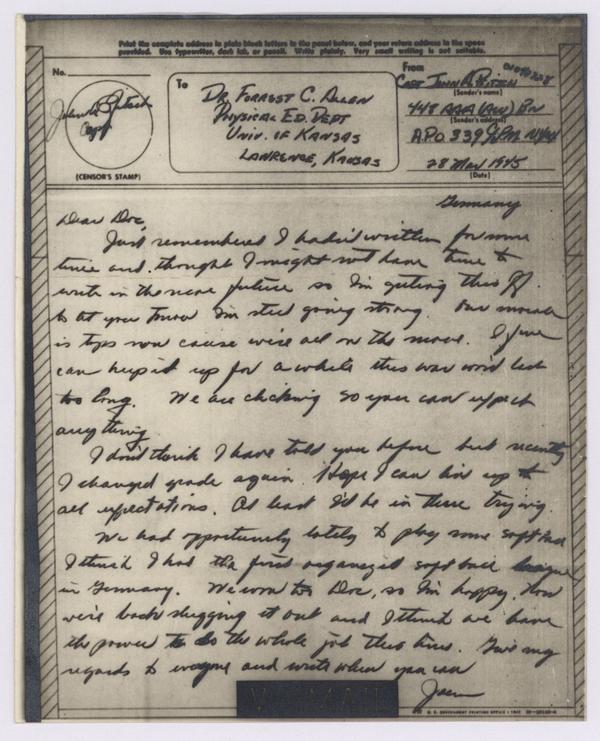 Print the complete address in plain block letters in the panel below, and your return address in the space
provided. Use typewriter, dark ink, or pencil. Write plainly. Very small writing is not suitable.
No.
(CENSOR'S STAMP)
To
DR. FORREST C. ALLEN
PHYSICAL ED. DEPT
UNIV. OF KANSAS
LAWRENCE, KANSAS
From
CAPT JOHN A.
(Sender's name)
448 AAA (AW) BN
(Sender's address)
A.P.O. 339 % P.M. N.Y.
28 Mar 1945
(Date)
Germany
Dear Doc,
Just remembered I hadn't written for some
time and thought I might not have time to
write in the near future so I'm getting this off
to let you know I'm still going strong. Our morale
is tops now cause we're all on the move. If we
can keep it up for a while this war won't last
too long. We are clicking so you can expect
anything.
I don't think I have told you before but recently
I changed grade again. Hope I can live up to
all expectations. At least I'll be in there trying.
We had opportunity lately to play some soft ball
I think I had the first organized soft ball league
in Germany. We won too Doc, so I'm happy. Now
we're back slugging it out and I think we have
the power to do the whole job this time. Give my
regards to everyone and write when you can
John
V···MAIL
U. S. GOVERNMENT PRINTING OFFICE : 1942